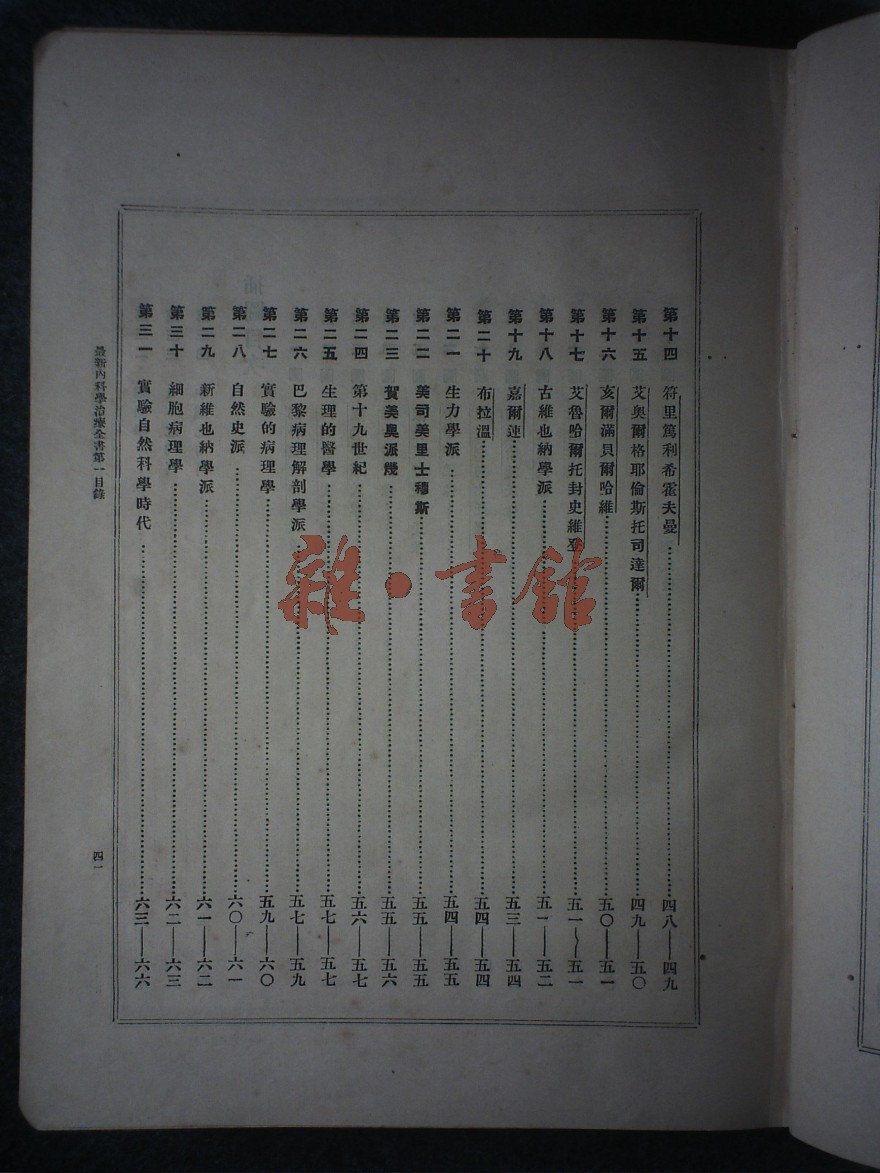 第十四 符里篤利希霍夫曼 四八——四九
第十五 艾奧爾格耶倫斯托司達爾 四九——五〇
第十六 亥爾滿貝爾哈維 五〇——五一
第十七 艾魯哈爾托封史維登 五一——五一
第十八 古維也納學派 五一——五二
第十九 嘉爾連 五三——五四
第二十 布拉溫 五四——五四
第二一 生力學派 五四——五五
第二二 美司美里士穆斯 五五——五五
第二三 賀美奧派幾 五五——五六
第二四 第十九世紀 五六——五七
第二五 生理的醫學 五七——五七
第二六 巴黎病理解剖學派 五七——五九
第二七 實驗的病理學 五九——六〇
第二八 自然史派 六〇——六一
第二九 新維也納學派 六一——六二
第三十 細胞病理學 六二——六三
第三一 實驗自然科學時代 六三——六六
最新內科學治療全書第一目錄
四一
雜·書館